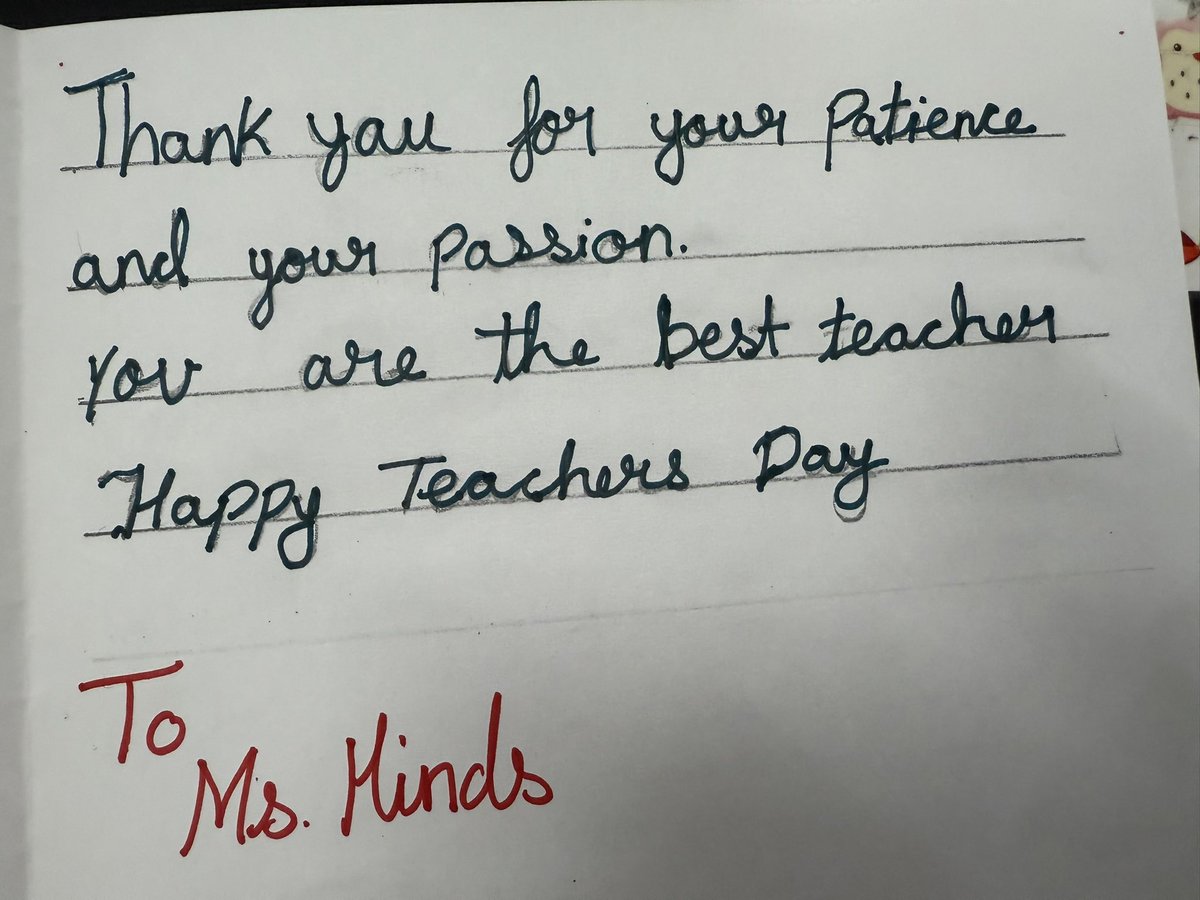 Thank you for your Patience
and your passion.
You are the best teacher
Happy Teachers Day
To
Ms. Hinds